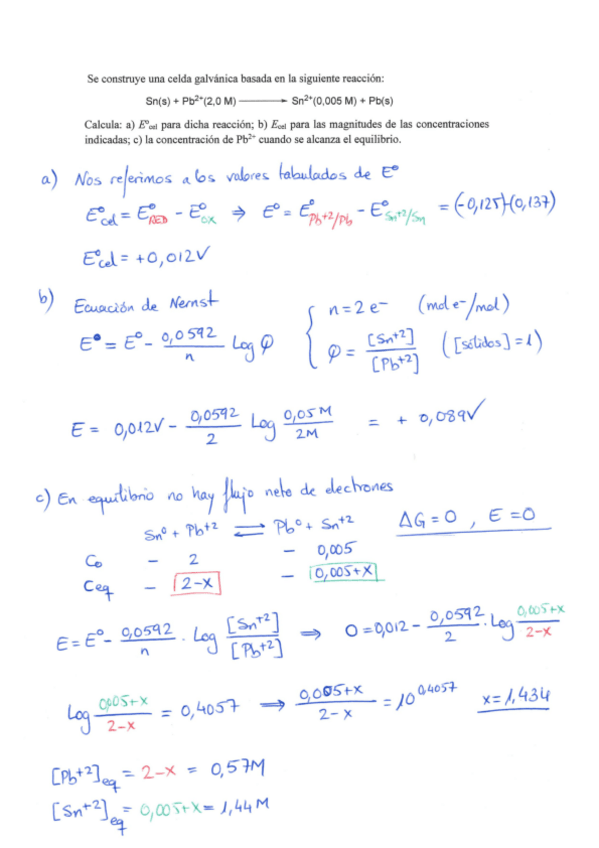 Se construye una celda galvánica basada en la siguiente reacción:
Sn(s) + Pb²⁺(2,0 M) ⟶ Sn²⁺(0,005 M) + Pb(s)
Calcula: a) E°cel para dicha reacción; b) Ecel para las magnitudes de las concentraciones
indicadas; c) la concentración de Pb²⁺ cuando se alcanza el equilibrio.
a) Nos referimos a los valores tabulados de E°
E°cel = E°RED - E°OX ⇒ E° = E°Pb+2/Pb - E°Sn+2/Sn = (-0,125)-(0,137)
E°cel = +0,012V
b) Ecuación de Nernst { n = 2e⁻ (mol e⁻/mol)
E° = E° - 0,0592/n Log Q { Q = [Sn+2]/[Pb+2] ([sólidos]=1)
E = 0,012V - 0,0592/2 Log 0,05M/2M = + 0,089V
c) En equilibrio no hay flujo neto de electrones
Sn° + Pb+2 ⇌ Pb° + Sn+2 ΔG=0 , E=0
Co - 2 - 0,005
Ceq - 2-x - 0,005+x
E = E° - 0,0592/n · Log [Sn+2]/[Pb+2] ⇒ 0=0,012 - 0,0592/2 · Log 0,005+x/2-x
Log 0,005+x/2-x = 0,4057 ⇒ 0,005+x/2-x = 10^0,4057 x=1,434
[Pb+2]eq = 2-x = 0,57M
[Sn+2]eq = 0,005+x = 1,44M